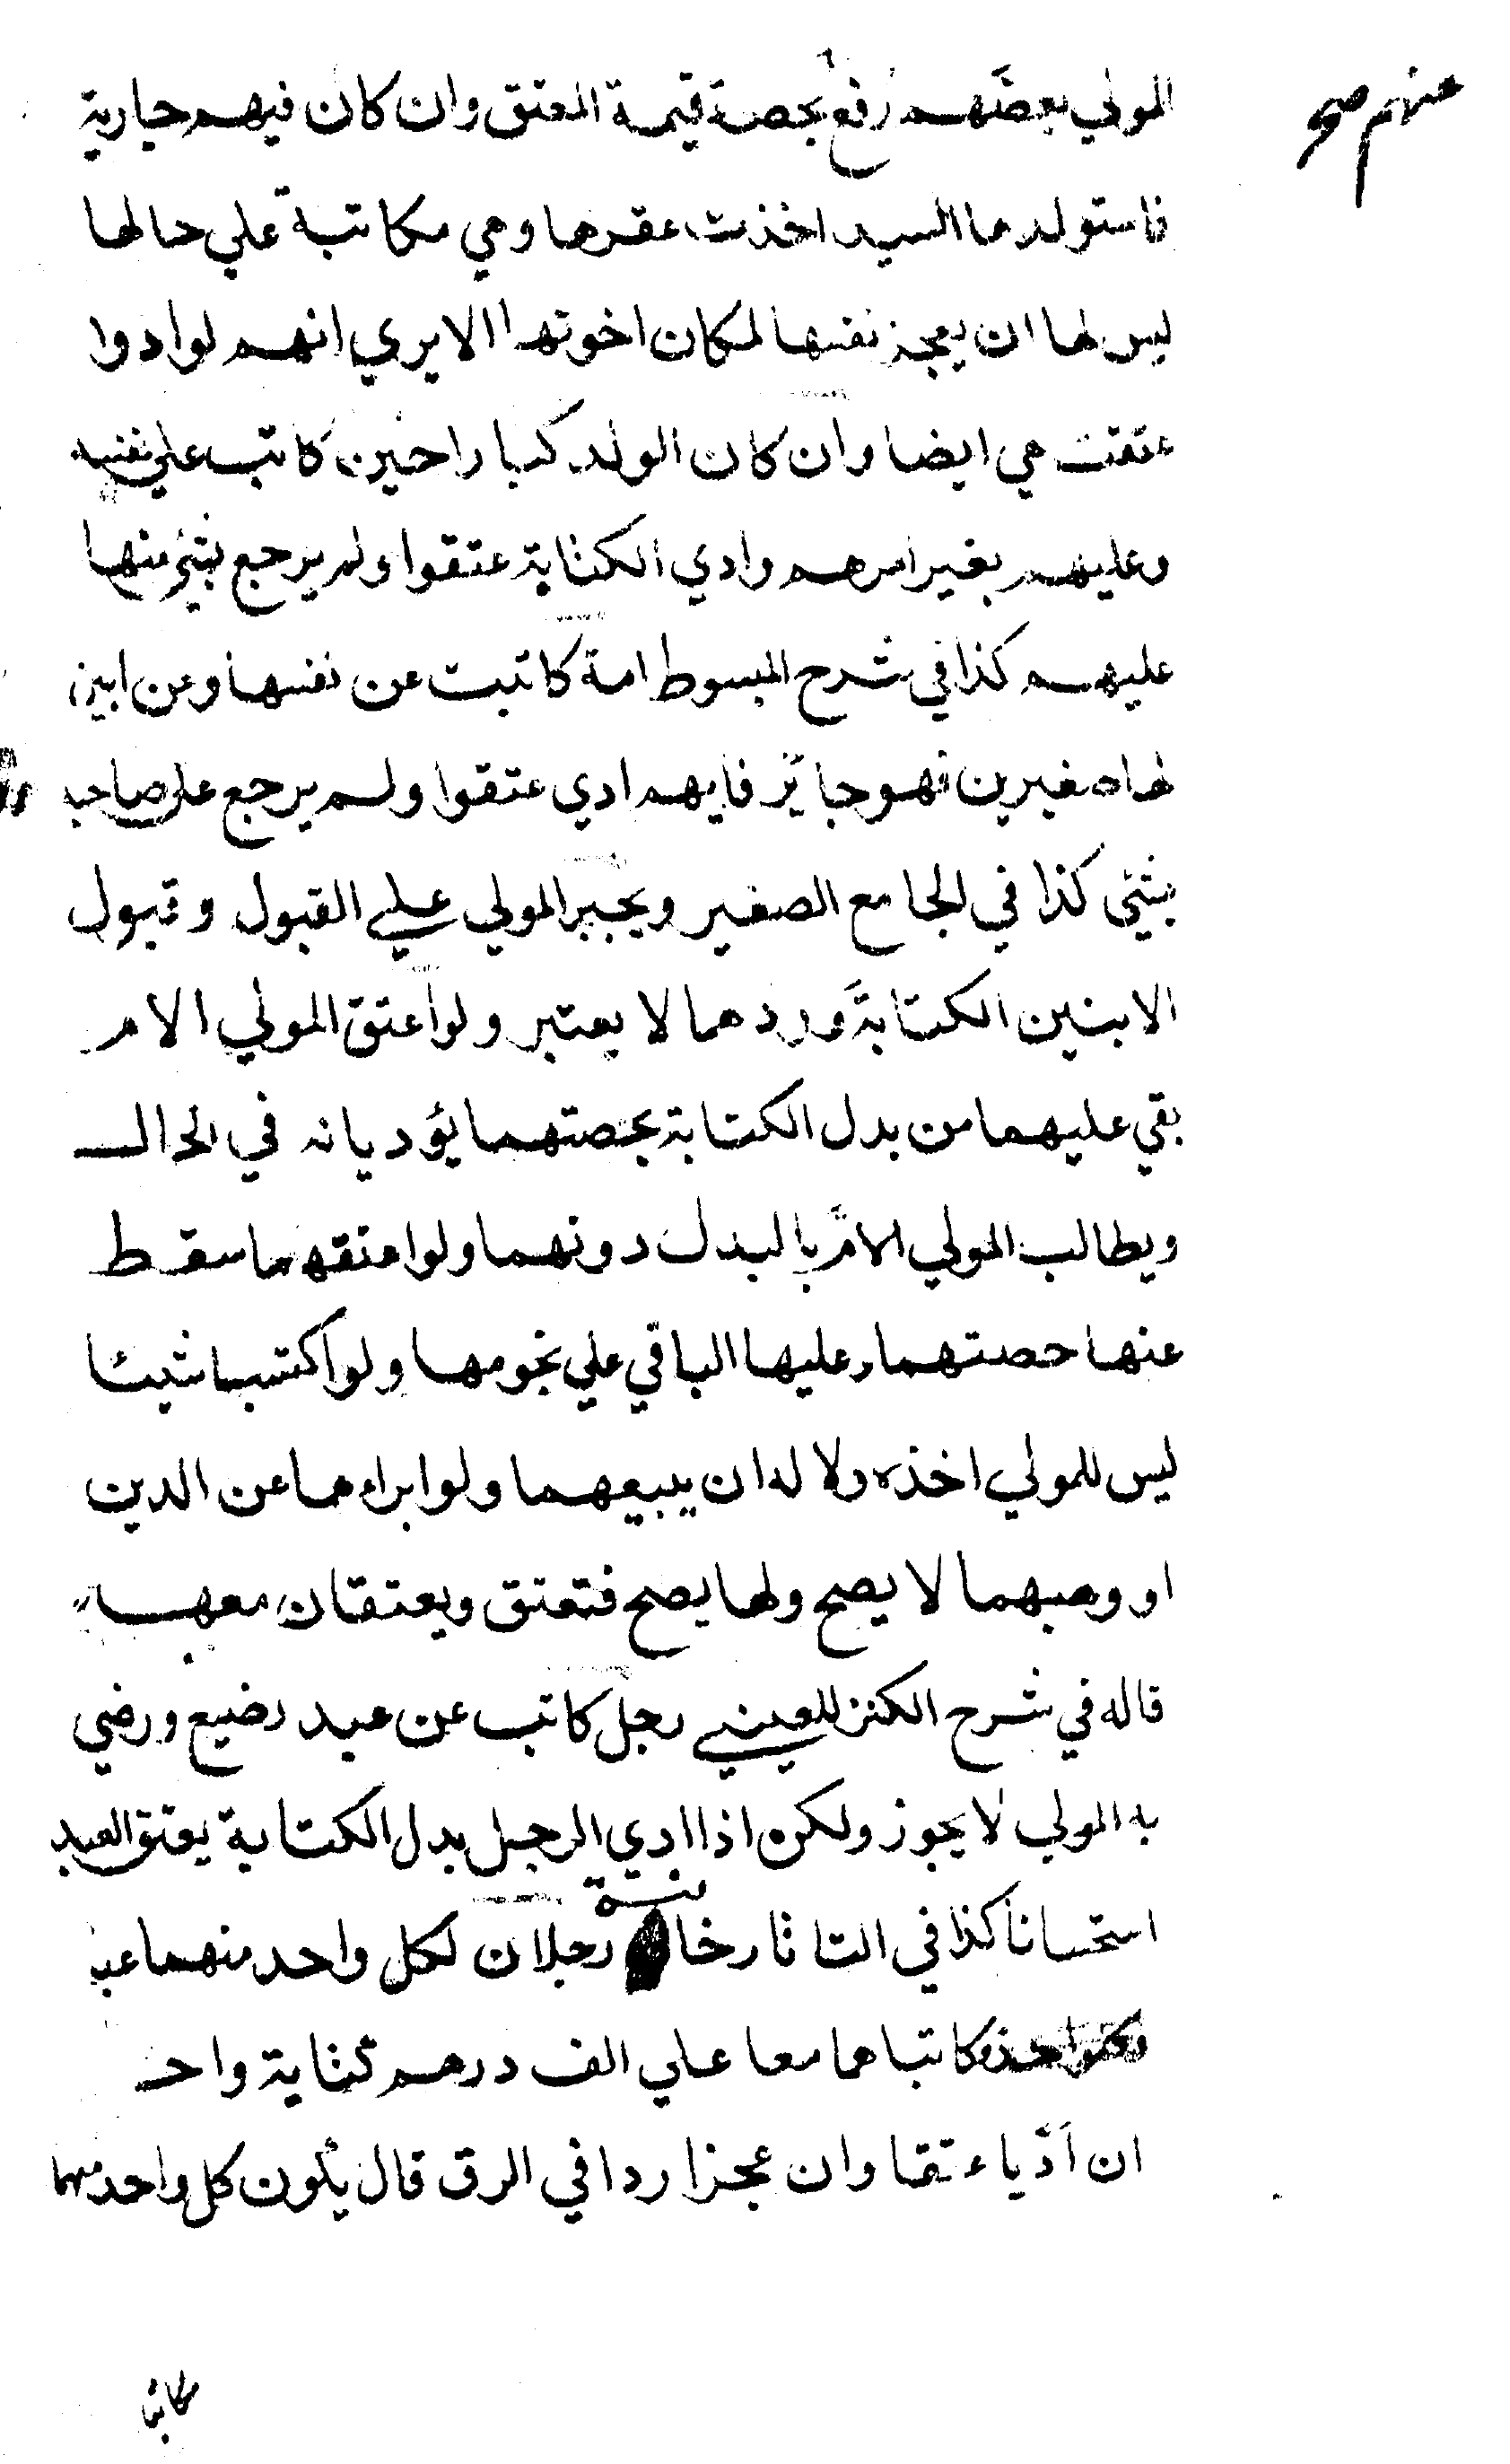 عنهم صح
المولي بعضهم رفع بحصة قيمة المعتق وان كان فيهم جارية
فاستولدها السيد اخذت عقرها وهي مكاتبة علي حالها
ليس لها ان يعجز نفسها لمكان اخوتها الا يري انهم لو ادوا
عتقت هي ايضا وان كان الولد كبارا حين كاتب علي نفسه
وعليهم بغير امرهم وادي الكتابة عتقوا ولم يرجع بشئ منها
عليهم كذا في شرح المبسوط امة كاتبت عن نفسها وعن ابنين
لها صغيرين فهو جائز فايهم ادي عتقوا ولم يرجع علي صاحبه
بشئ كذا في الجامع الصغير ويجبر المولي علي القبول وقبول
الابنين الكتابة وردهما لا يعتبر ولو اعتق المولي الام
بقي عليهما من بدل الكتابة بحصتهما يؤديانه في الحال
ويطالب المولي الام بالبدل دونهما ولو اعتقهما سقط
عنها حصتهما وعليها الباقي علي نجومها ولو اكتسبا شيئا
ليس للمولي اخذه ولا له ان يبيعهما ولو ابراءهما عن الدين
او وهبهما لا يصح ولها يصح فتعتق ويعتقان معها
قاله في شرح الكنز للعيني رجل كاتب عن عبد رضيع ورضي
به المولي لا يجوز ولكن اذا ادي الرجل بدل الكتابة يعتق العبد
استحسانا كذا في التاتارخانية رجلان لكل واحد منهما عبد
كاتباهما معا علي الف درهم كتابة واحد
ان ادّيا عتقا وان عجزا ردا في الرق قال يكون كل واحد منهما
مكاتبا